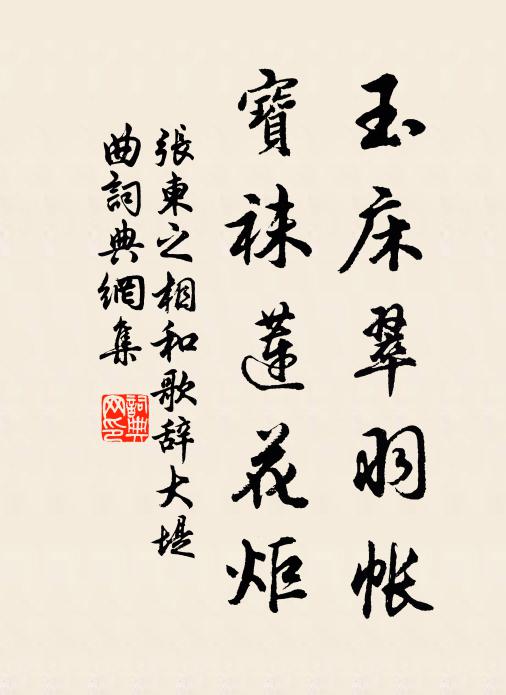 玉床翠羽帳
寶袜蓮花炬
張東之相和歌辞大堤
曲詞典網集
詞典网印